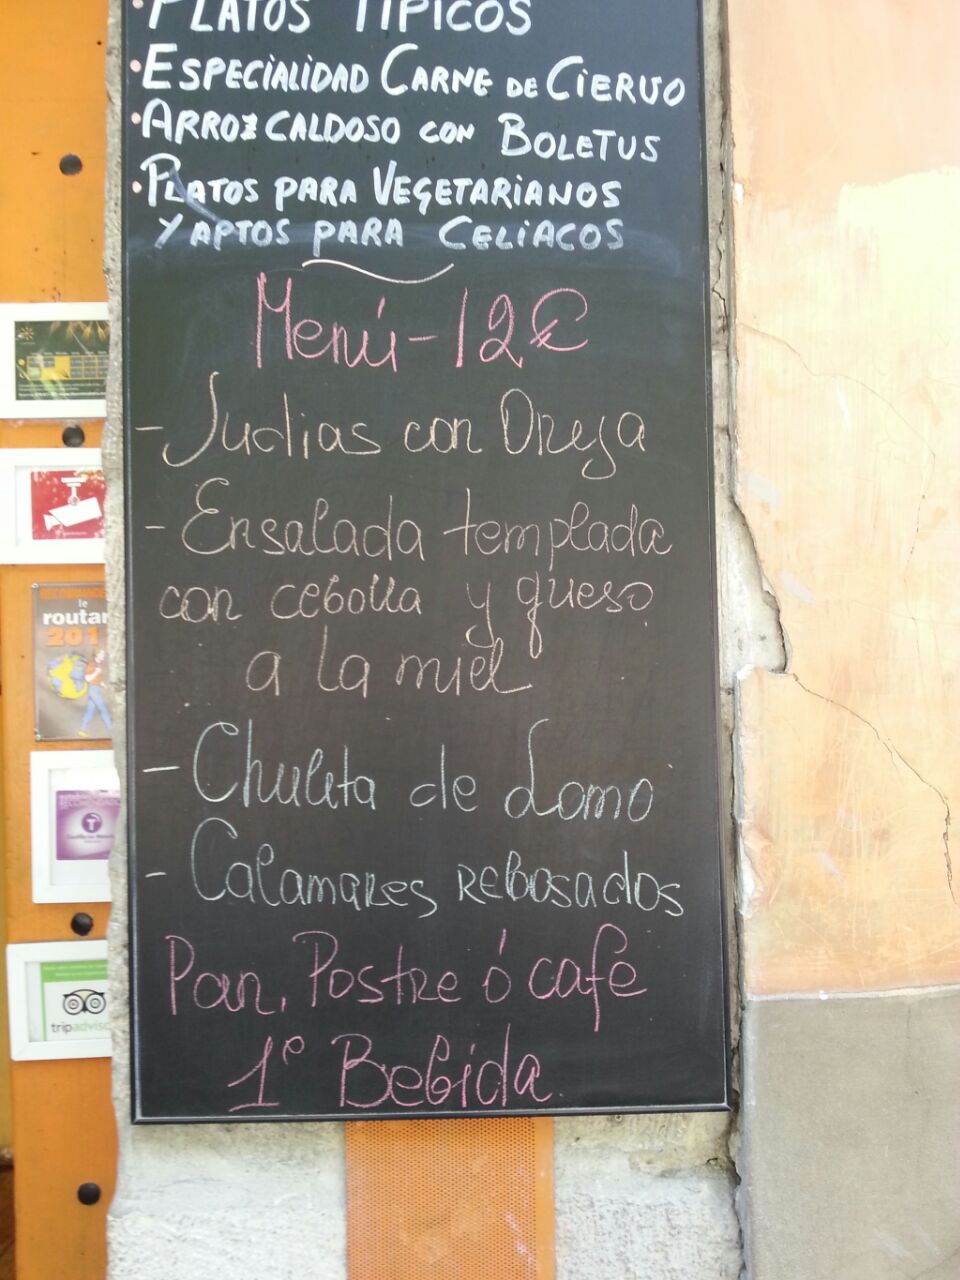 · PLATOS TÍPICOS
· ESPECIALIDAD CARNE DE CIERVO
· ARROZ CALDOSO CON BOLETUS
· PLATOS PARA VEGETARIANOS
Y APTOS PARA CELIACOS
Menú - 12€
- Judias con Oreja
- Ensalada templada
con cebolla y queso
a la miel
- Chuleta de Lomo
- Calamares rebosados
Pan, Postre ó café
1ª Bebida
le
routar
201
tripadvisor